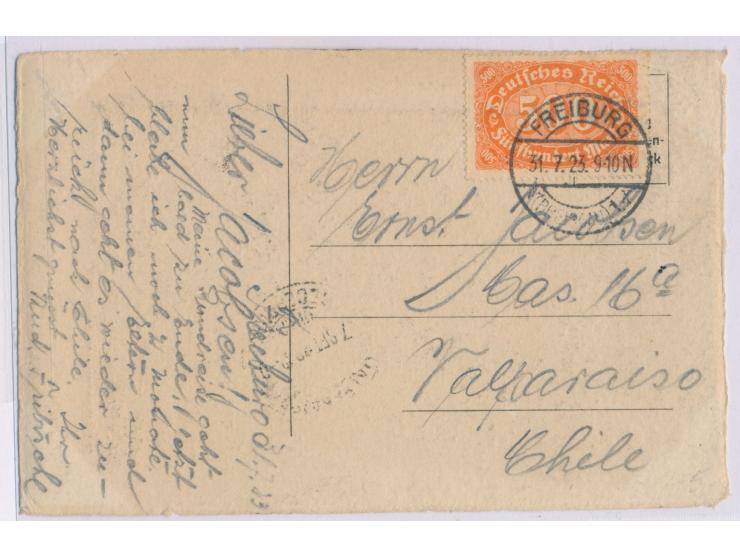 500 500
Deutsches Reich
500
FREIBURG
31.7.23. 9-10 N
Herrn
Ernst Jacobsen
Cas. 16a
Valparaiso
Chile
Freiburg 31.7.23
Lieber Jacobsen!
Meine Rundreise geht
nun bald zu Ende, jetzt
bleibe ich noch 2 Monate
bei meinen Eltern und
dann geht es wieder zu-
nach Chile. Ihr
Herzlichst grüsst